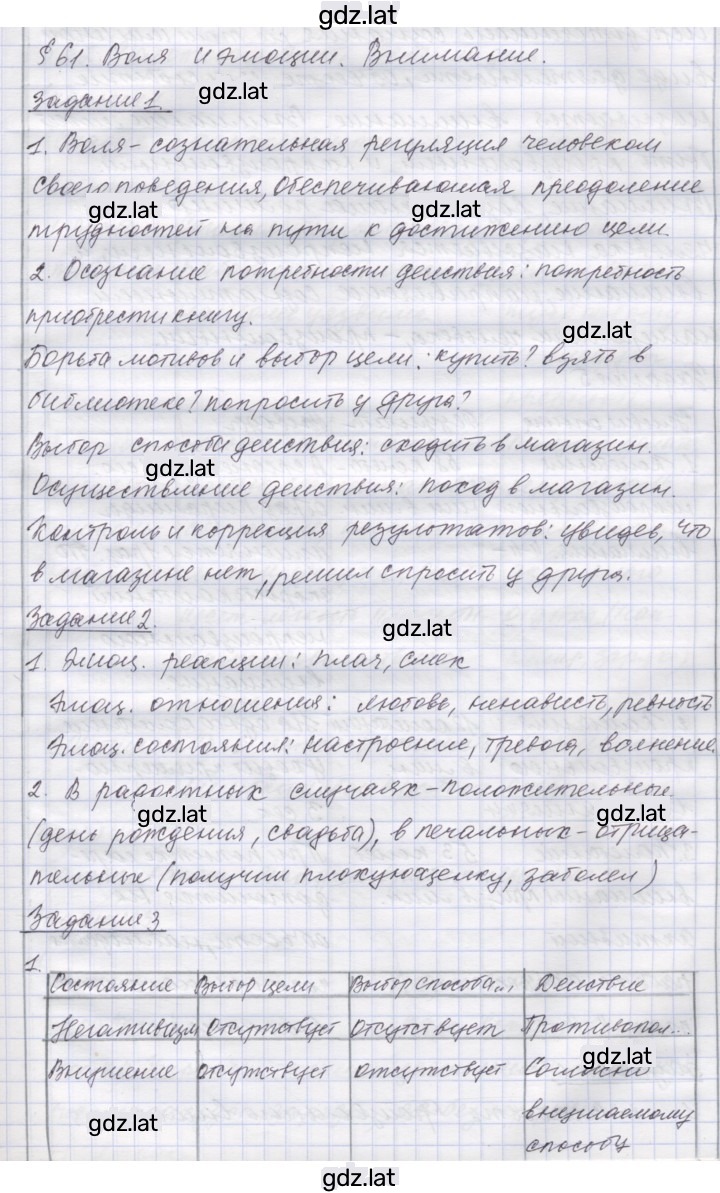 gdz.lat
§ 61. Воля и эмоции. Внимание.
gdz.lat
Задание 1.
1. Воля - сознательная регуляция человеком
своего поведения, обеспечивающая преодоление
gdz.lat gdz.lat
трудностей на пути к достижению цели.
2. Осознание потребности действия: потребность
приобрести книгу.
gdz.lat
Борьба мотивов и выбор цели: купить? взять в
библиотеке? попросить у друга?
Выбор способа действия: сходить в магазин.
gdz.lat
Осуществление действия: поход в магазин.
Контроль и коррекция результатов: увидев, что
в магазине нет, решил спросить у друга.
Задание 2.
gdz.lat
1. Эмоц. реакции: плач, смех
Эмоц. отношения: любовь, ненависть, ревность
Эмоц. состояния: настроение, тревога, волнение.
2. В радостных случаях - положительные
gdz.lat gdz.lat
(день рождения, свадьба), в печальных - отрица-
тельные (получил плохую оценку, заболел)
Задание 3
1.
Состояние Выбор цели Выбор способа... Действие
Негативизм Отсутствует Отсутствует Противопол...
gdz.lat
Внушение отсутствует отсутствует Согласно
gdz.lat
внушаемому
способу
gdz.lat